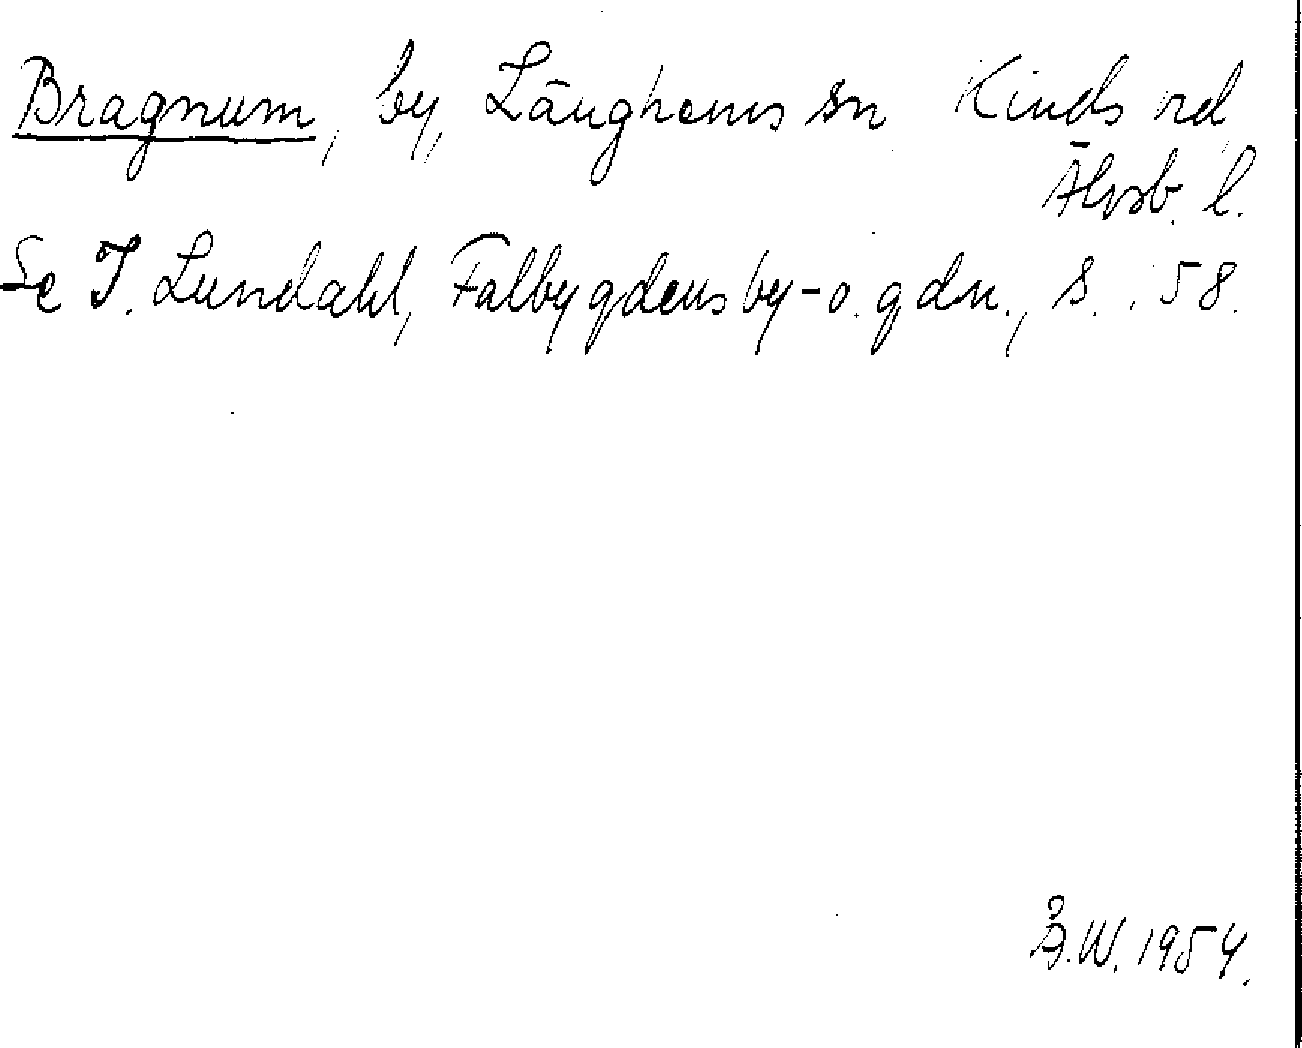 Bragnum, by, Länghems sn Kinds hd,
Älvsb. l.
Se I. Lundahl, Falbygdens by- o. gdn., s. 58.
Å.W. 1954.